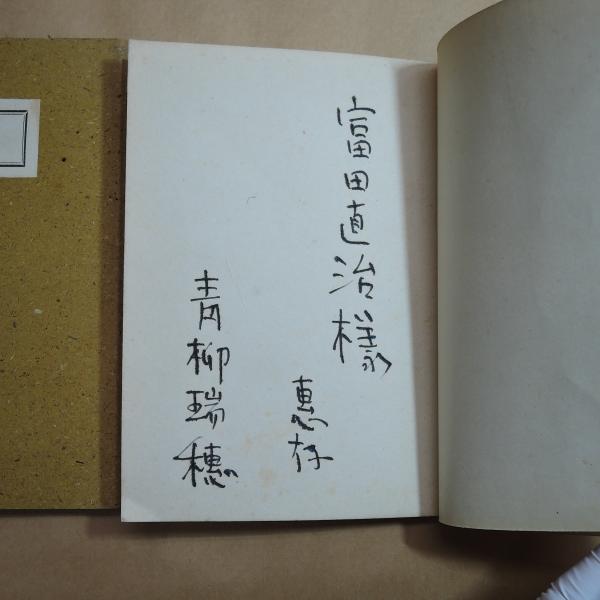 富田直治様
惠存
青柳瑞穂